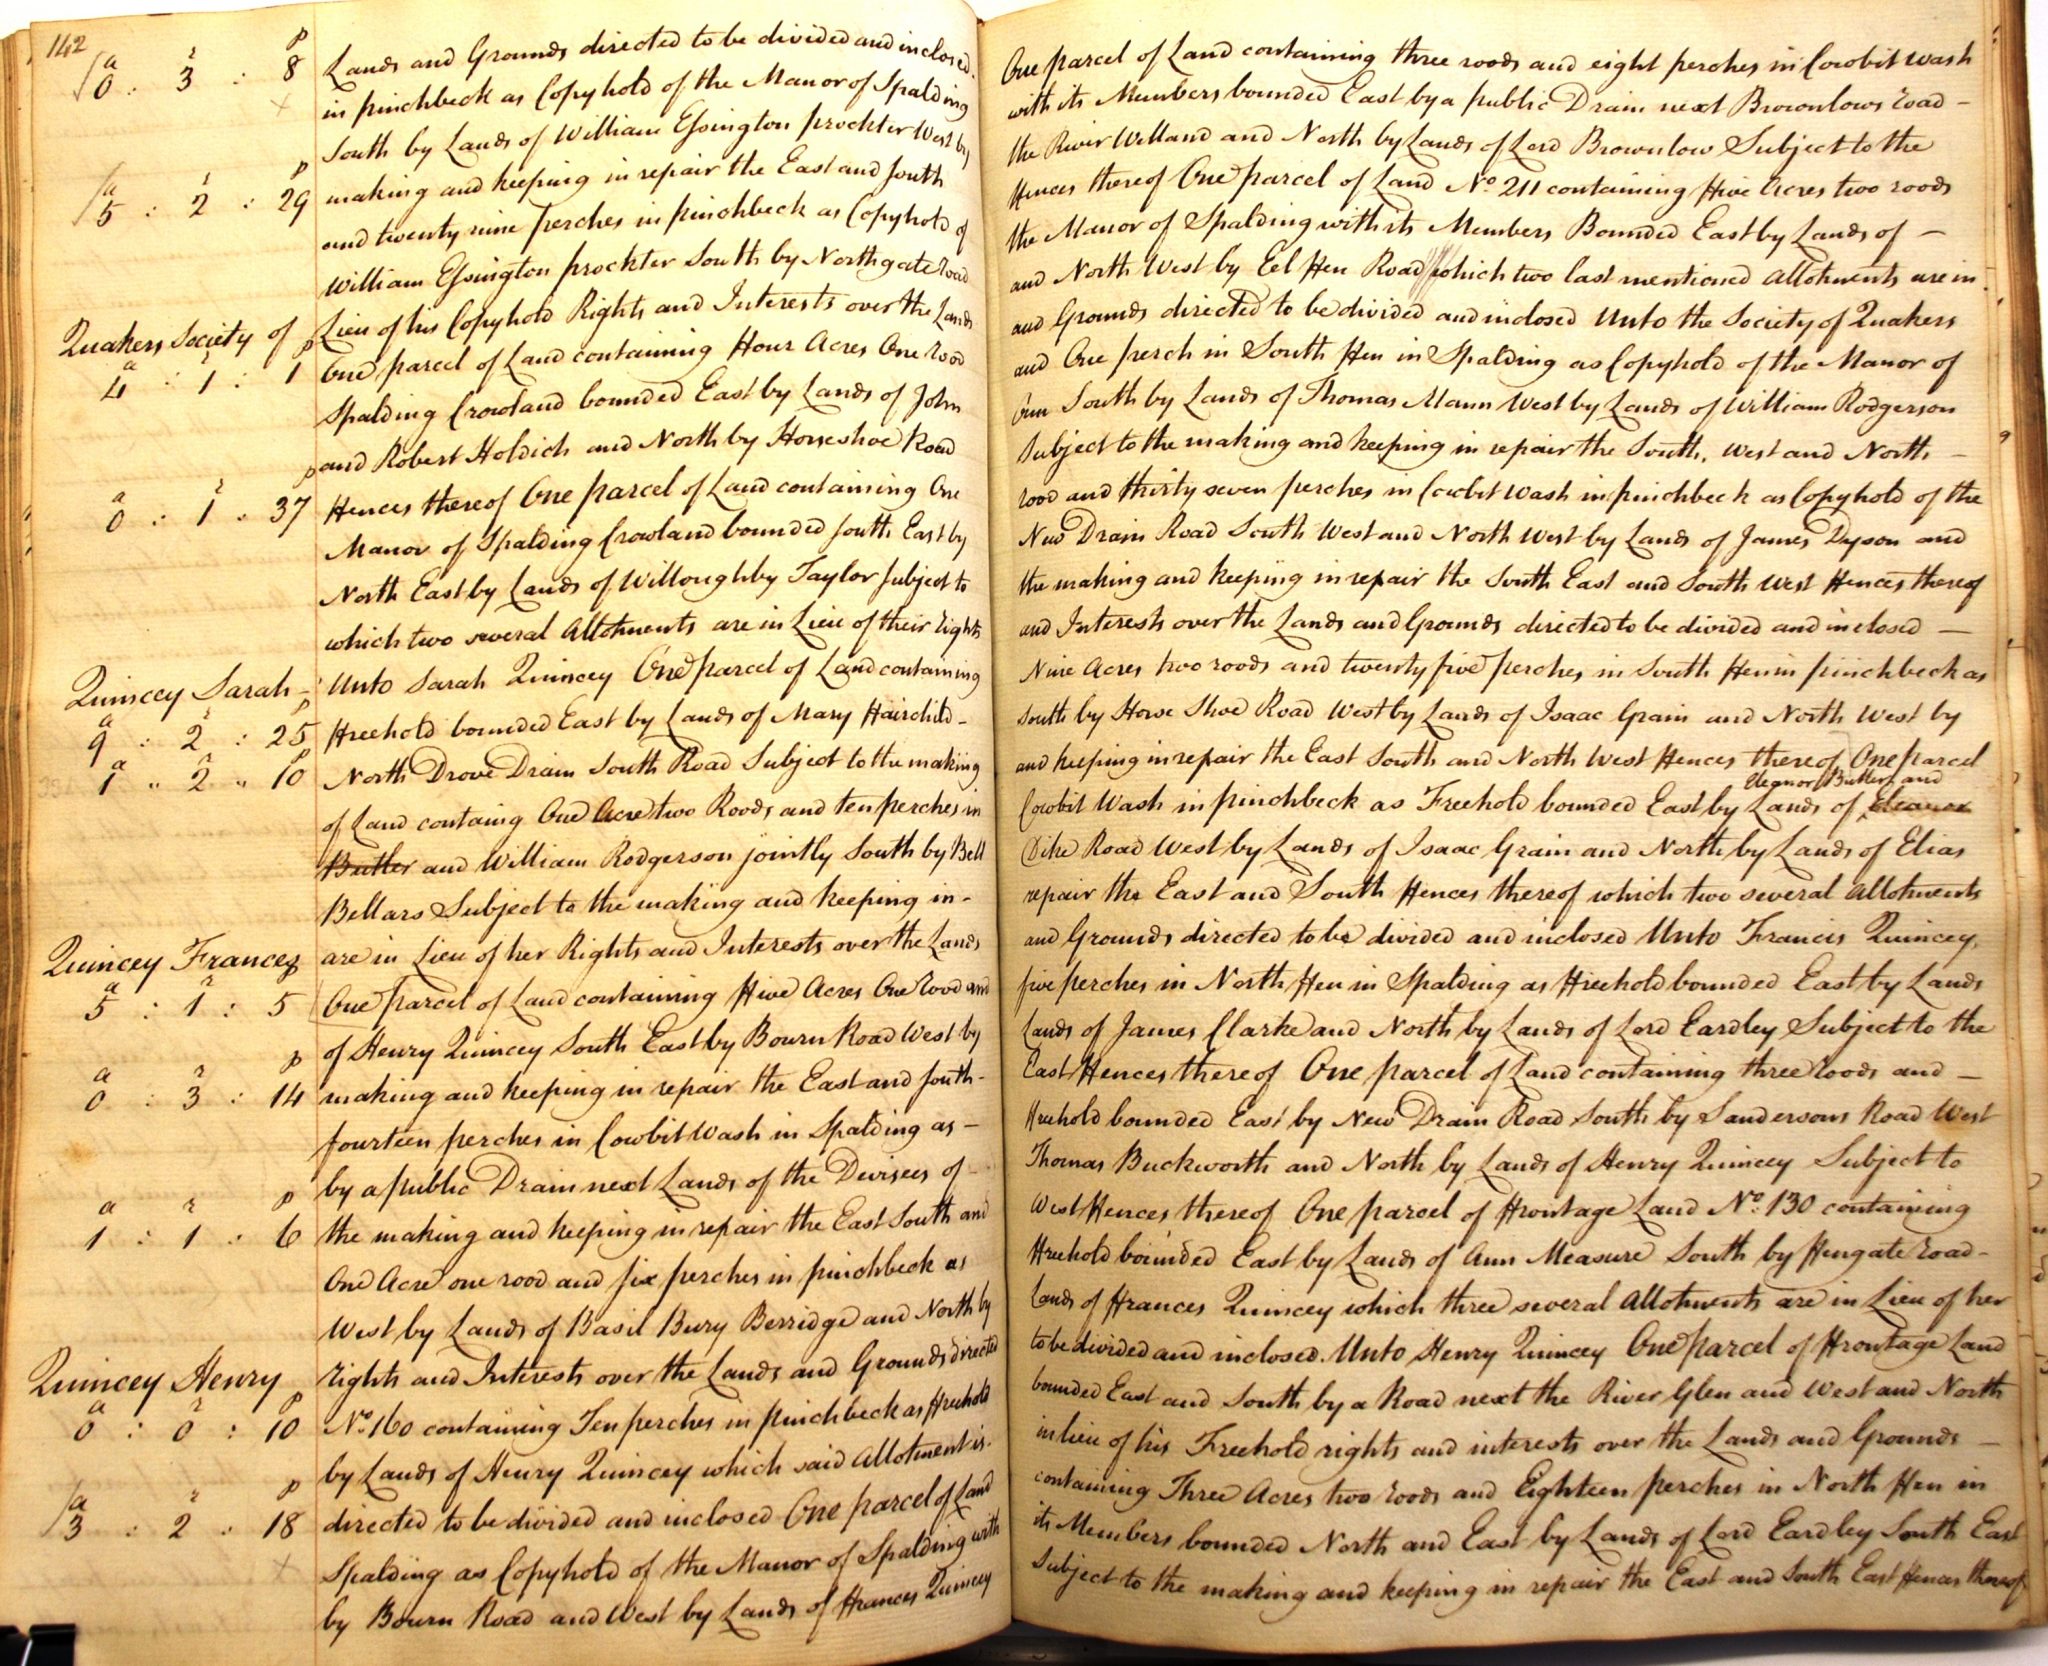 142
a r p
0 : 3 : 8
Lands and Grounds directed to be divided and inclosed - One parcel of Land containing three roods and eight perches in Cowbit Wash
in pinchbeck as Copyhold of the Manor of Spalding with its Members bounded East by a public Drain next Brownlows road -
South by Lands of William Essington prockter West by the River Welland and North by Lands of Lord Brownlow Subject to the
a r p
5 : 2 : 29
making and keeping in repair the East and South Fences thereof One parcel of Land No. 211 containing Five Acres two roods
and twenty nine perches in pinchbeck as Copyhold of the Manor of Spalding with its Members Bounded East by Lands of -
William Essington prockter South by Northgate road and North West by Eel Fen Road which two last mentioned Allotments are in
Quakers Society of
Lieu of his Copyhold Rights and Interests over the Lands and Grounds directed to be divided and inclosed Unto the Society of Quakers
a r p
4 : 1 : 1
One parcel of Land containing Four Acres One rood and One perch in South Fen in Spalding as Copyhold of the Manor of
Spalding Crowland bounded East by Lands of John Orm South by Lands of Thomas Mann West by Lands of William Rodgerson
and Robert Holdich and North by Horseshoe Road Subject to the making and keeping in repair the South, West and North -
a r p
0 : 1 : 37
Fences thereof One parcel of Land containing One rood and thirty seven perches in Cowbit Wash in pinchbeck as Copyhold of the
Manor of Spalding Crowland bounded South East by New Drain Road South West and North West by Lands of James Dyson and
North East by Lands of Willoughby Taylor Subject to the making and keeping in repair the South East and South West Fences thereof
which two several Allotments are in Lieu of their rights and Interests over the Lands and Grounds directed to be divided and inclosed -
Quincey Sarah -
Unto Sarah Quincey One parcel of Land containing Nine Acres two roods and twenty five perches in South Fen in pinchbeck as
a r p
9 : 2 : 25
Freehold bounded East by Lands of Mary Fairchild - South by Horse Shoe Road West by Lands of Isaac Grain and North West by
a r p
1 " 2 " 10
North Drove Drain South Road Subject to the making and keeping in repair the East South and North West Fences thereof One parcel
of Land containg One Acre two Roods and ten perches in Cowbit Wash in pinchbeck as Freehold bounded East by Lands of Eleanor
Eleanor Butler and
Butler and William Rodgerson jointly South by Bell Dike Road West by Lands of Isaac Grain and North by Lands of Elias
Bellars Subject to the making and keeping in - repair the East and South Fences thereof which two several Allotments
Quincey Frances
are in Lieu of her Rights and Interests over the Lands and Grounds directed to be divided and inclosed Unto Francis Quincey,
a r
5 : 1 : 5
One parcel of Land containing Five Acres One rood and five perches in North Fen in Spalding as Freehold bounded East by Lands
of Henry Quincey South East by Bourn Road West by Lands of James Clarke and North by Lands of Lord Eardley Subject to the
a r p
0 : 3 : 14
making and keeping in repair the East and South - East Fences thereof One parcel of Land containing three roods and -
fourteen perches in Cowbit Wash in Spalding as - Freehold bounded East by New Drain Road South by Sandersons Road West
by a public Drain next Lands of the Devisees of - Thomas Buckworth and North by Lands of Henry Quincey Subject to
a r p
1 : 1 : 6
the making and keeping in repair the East South and West Fences thereof One parcel of Frontage Land No. 130 containing
One Acre one rood and six perches in pinchbeck as Freehold bounded East by Lands of Ann Measure South by Fengate road -
West by Lands of Basil Bury Berridge and North by Lands of Frances Quincey which three several Allotments are in Lieu of her
Quincey Henry
rights and Interests over the Lands and Grounds directed to be divided and inclosed. Unto Henry Quincey One parcel of Frontage Land
a r p
0 : 0 : 10
No. 160 containing Ten perches in pinchbeck as Freehold bounded East and South by a Road next the River Glen and West and North
by Lands of Henry Quincey which said Allotment is - in lieu of his Freehold rights and interests over the Lands and Grounds -
a r p
3 : 2 : 18
directed to be divided and inclosed One parcel of Land containing Three Acres two roods and Eighteen perches in North Fen in
Spalding as Copyhold of the Manor of Spalding with its Members bounded North and East by Lands of Lord Eardley South East
by Bourn Road and West by Lands of Frances Quincey Subject to the making and keeping in repair the East and South East Fences thereof